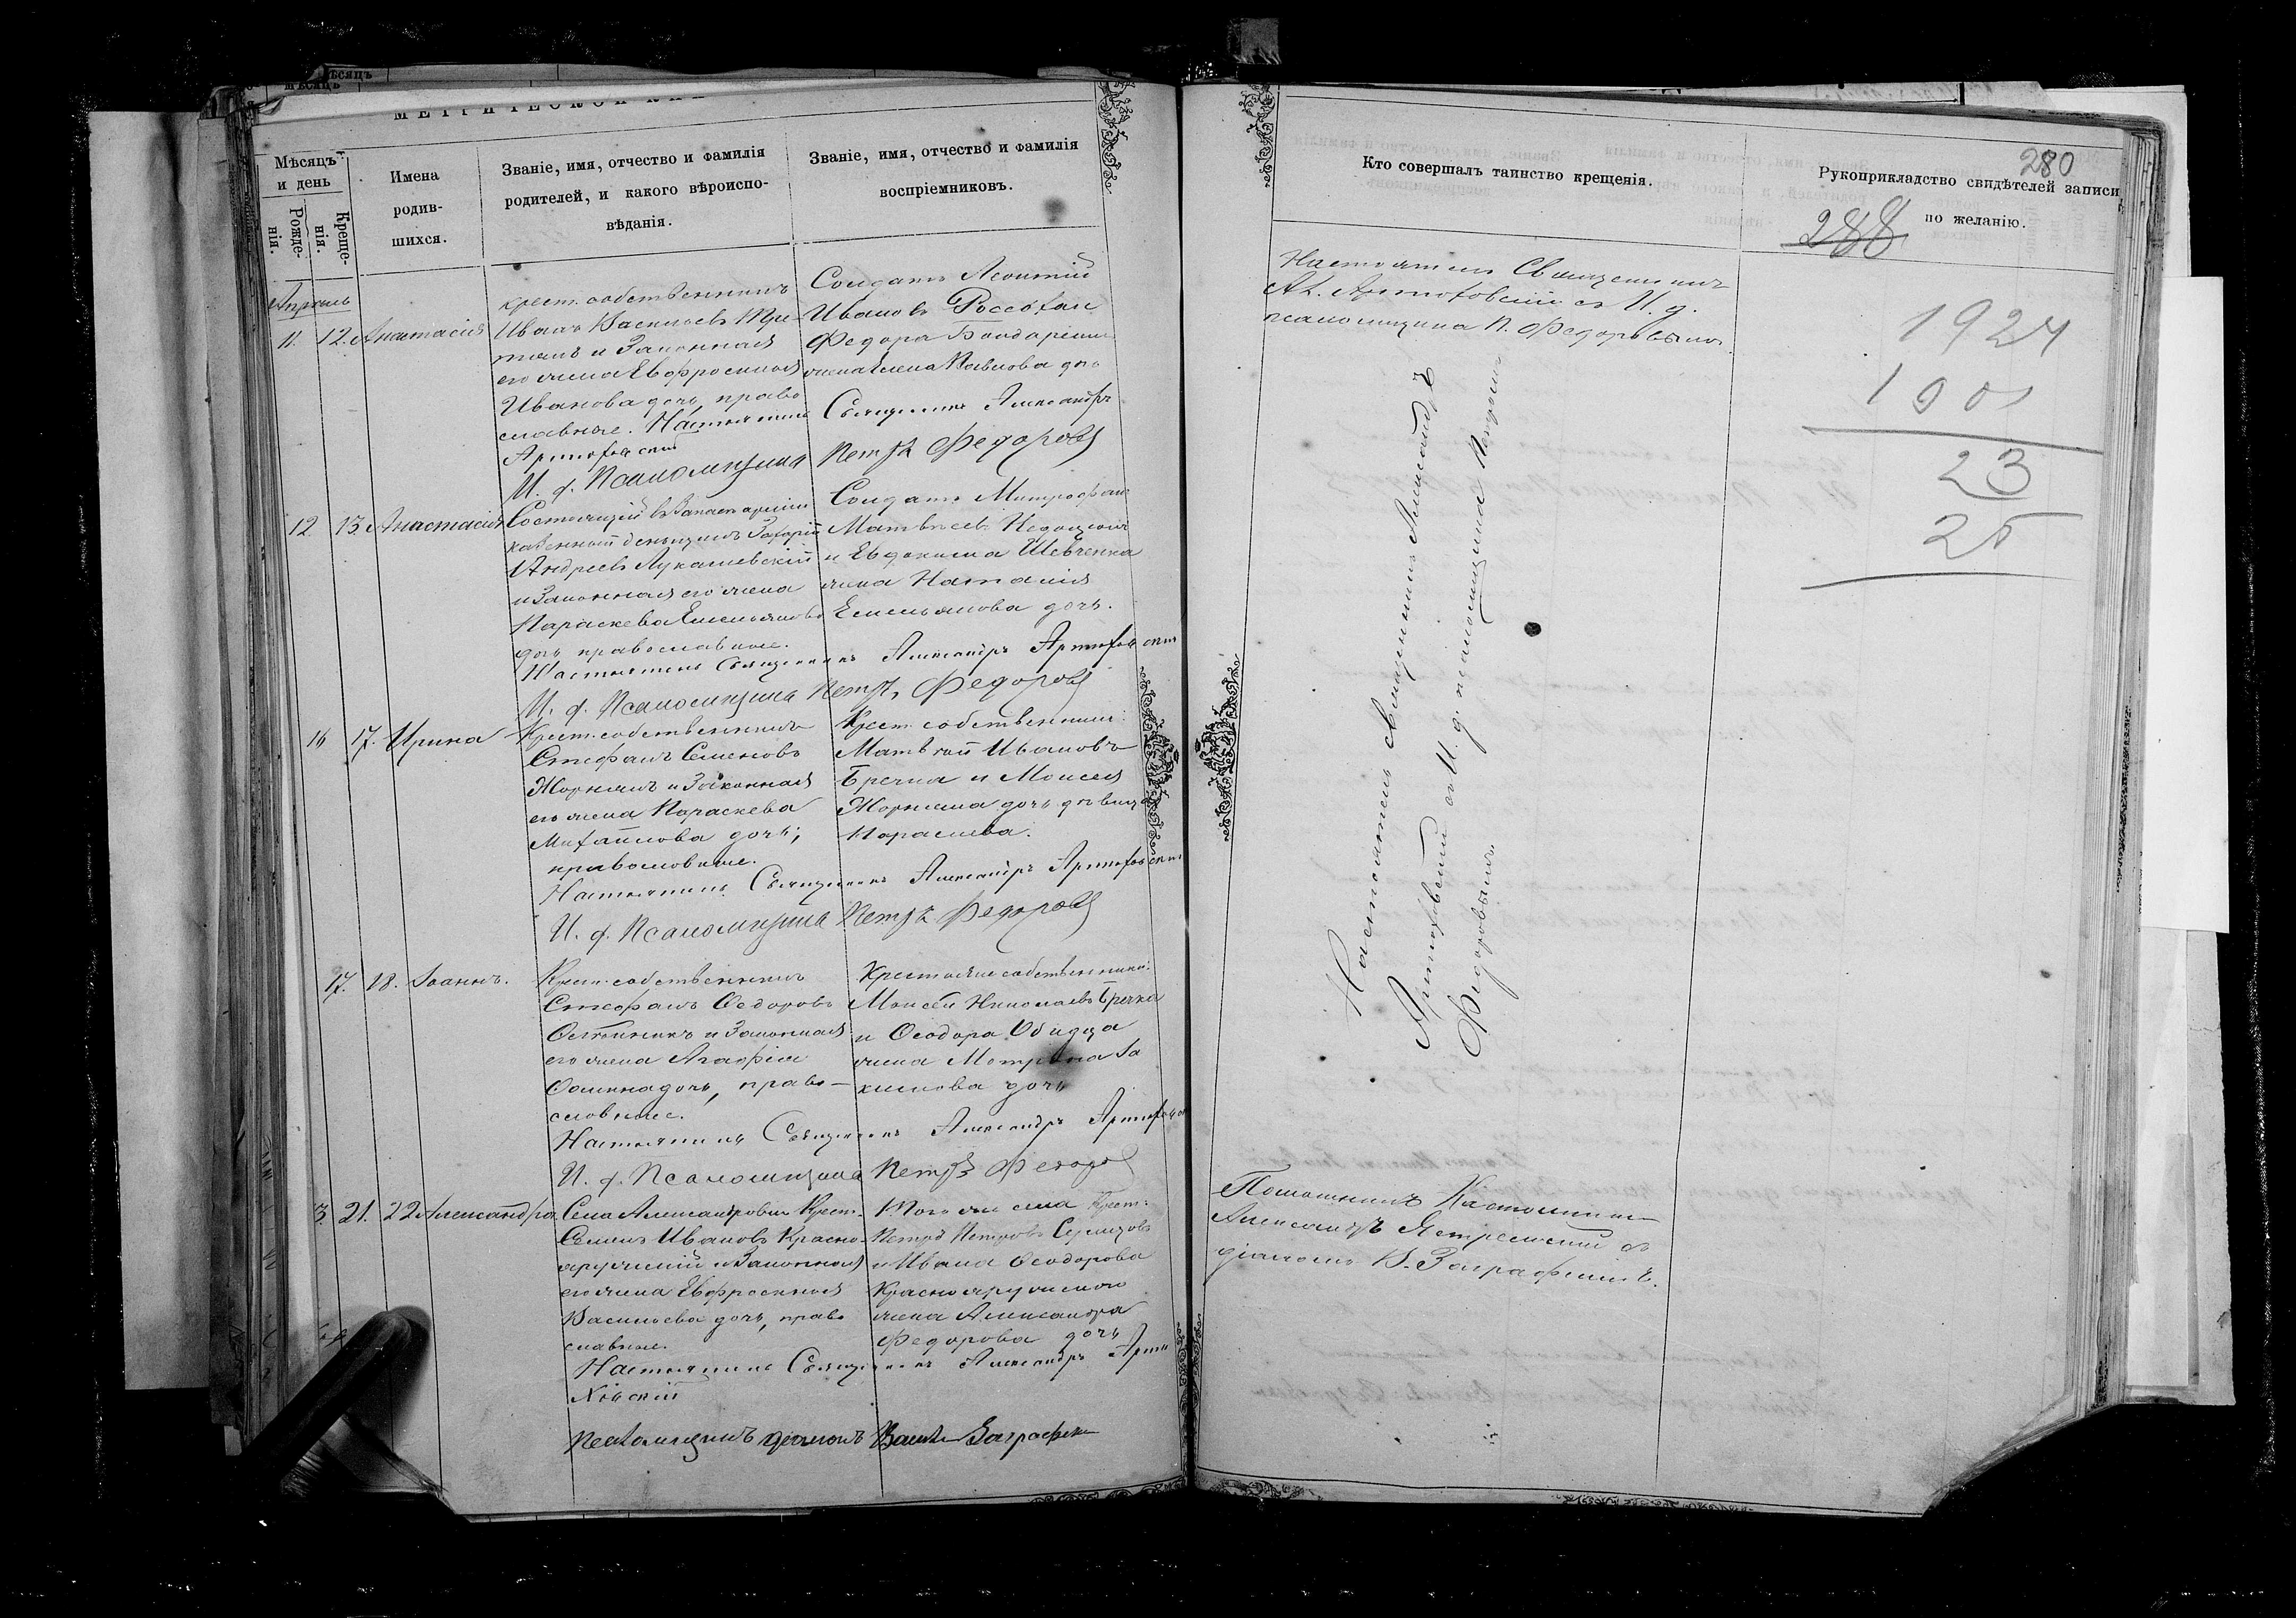 МЕТРИЧЕСКОЙ
Мѣсяцъ и день
Рожде-
нія.
Креще-
нія.
Имена
родив-
шихся.
Званіе, имя, отчество и фамилія
родителей, и какого вѣроиспо-
вѣданія.
Званіе, имя, отчество и фамилія
воспріемниковъ.
Апрѣль
11. 12. Анастасія
крест. собственникъ
Иванъ Васильевъ
и Законная
его жена Евфросинія
Иванова дочь, право
славные.
Солдатъ Леонтій
Ивановъ
Федора Бондаренка
жена Елена Павлова дочь
Настоятель Священникъ Александръ
Артюховскій
И. д. Псаломщика Петръ Федоровъ
12. 13. Анастасія
Состоящій въ Запасѣ арміи
казенный деньщикъ Захарій
Андреевъ Лукашевскій
и Законная его жена
Параскева Емельянова
дочь православные.
Солдатъ Митрофан
Матвѣевъ
и Евдокима Шевченка
жена Наталія
Емельянова дочь.
Настоятель Священникъ Александръ Артюховскій
И. д. Псаломщика Петръ Федоровъ
16 17. Ирина
Крест. собственникъ
Стефанъ Семеновъ
и Законная
его жена Параскева
Михайлова дочь,
православные.
Крест. собственники:
Матвѣй Ивановъ
Бречка и Моисея
дочь дѣвица
Параскева.
Настоятель Священникъ Александръ Артюховскій
И. д. Псаломщика Петръ Федоровъ
17. 18. Іоаннъ.
Крест. собственникъ
Стефанъ Ѳедоровъ
и Законная
его жена Агафія
дочь, право-
славные.
Крестьяне собственники:
Моисей Николаевъ Бречка
и Ѳеодора
жена Матрона Іа
кимова дочь
Настоятель Священникъ Александръ
И. д. Псаломщика Петръ Федоровъ
3. 21. 22 Александра
Села Александровки Крест.
Семенъ Ивановъ Красно-
и Законная
его жена Евфросинія
Васильева дочь, право
славные.
Того же села Крест:
Петръ Петровъ
и Ивана Ѳеодорова
жена Александра
Федорова дочь
Настоятель Священникъ Александръ Артю
ховскій
Псаломщикъ діаконъ
280
Кто совершалъ таинство крещенія.
Рукоприкладство свидѣтелей записи
по желанію.
288
Настоятель Священникъ
Ал. Артюховскій съ И. д.
псаломщика П. Федоровымъ.
1924
1901
23
25
Настоятель священникъ Александръ
Артюховскій съ И. д. псаломщика Петромъ
Федоровымъ
Помощникъ Настоятеля
Александръ съ
діакономъ В.